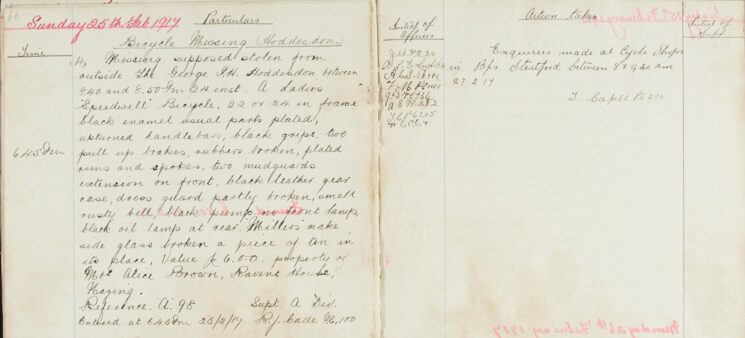 66
Sunday 25th Feb 1917
Particulars
Time
Bicycle Missing (Hoddesdon.)
Missing supposed stolen from
outside The George P.H. Hoddesdon between
8.40 and 8.50 Pm 24 inst. A Ladies
"Speedwell" Bicycle, 22 or 24 in frame
black enamel usual parts plated,
upturned handlebars, black grips, two
6.45 Pm
pull up brakes, rubbers broken, plated
rims and spokes, two mudguards
extension on front, black leather gear
case, dress guard partly broken, small
rusty bell, black pump, no front lamp,
black oil lamp at rear "Millers" make
side glass broken a piece of tin in
its place, Value £ 6.0.0. property of
Mrs Alice Brown, Ravens House,
Nazing.
Reference. A. 98 Supt. A Div.
Entered at 6.45 Pm 25/2/17 R.J. Cade 100
Initial of
Officers
Action taken
Initial of
Supt
Enquiries made at Cycle Shops
in Bps Stortford between 8 & 9.30 am
27.2.17